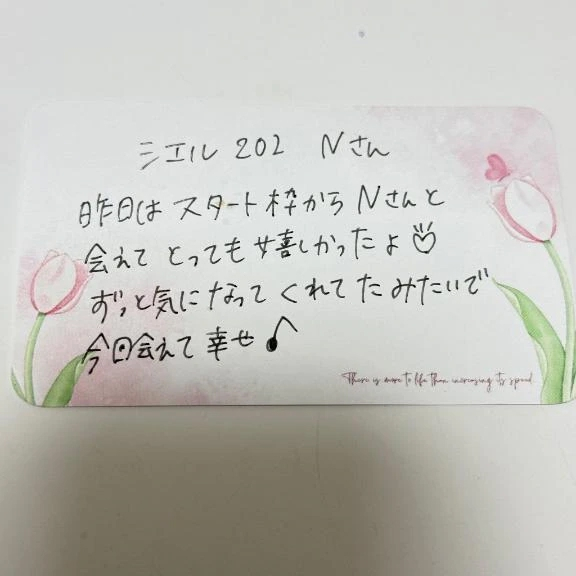 シエル 202 Nさん
昨日は スタート枠から Nさんと
会えて とっても 嬉しかったよ♡
ずっと気に なって くれてた みたいで
今回会えて 幸せ♪
There is more to life than increasing its speed.